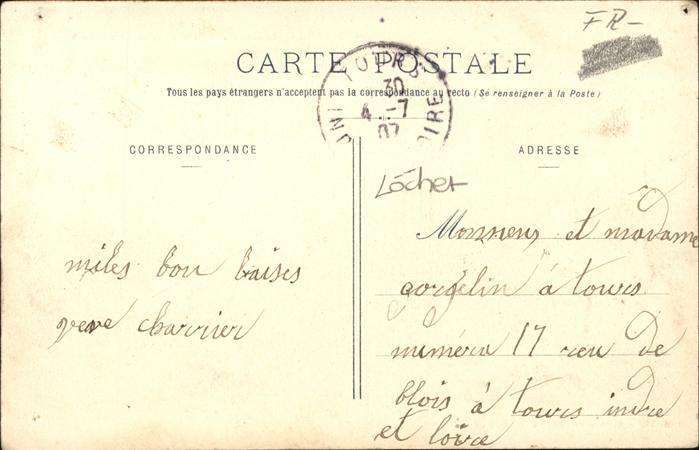 FR-
CARTE POSTALE
Tous les pays étrangers n'acceptent pas la correspondance au recto (Se renseigner à la Poste)
TOURS
30
4 -7
07
INDRE
LOIRE
CORRESPONDANCE
ADRESSE
Loches
miles bon baises
veve charrier
Monsieur et madame
gorgelin à tours
numéro 17 reu de
blois à tours indre
et loire